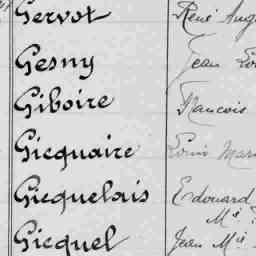 Gervot René Aug
Gesny Jean Lo
Giboire Francois
Gicquaire Louis Mari
Gicquelais Edouard
Mie
Gicquel Jean Mie